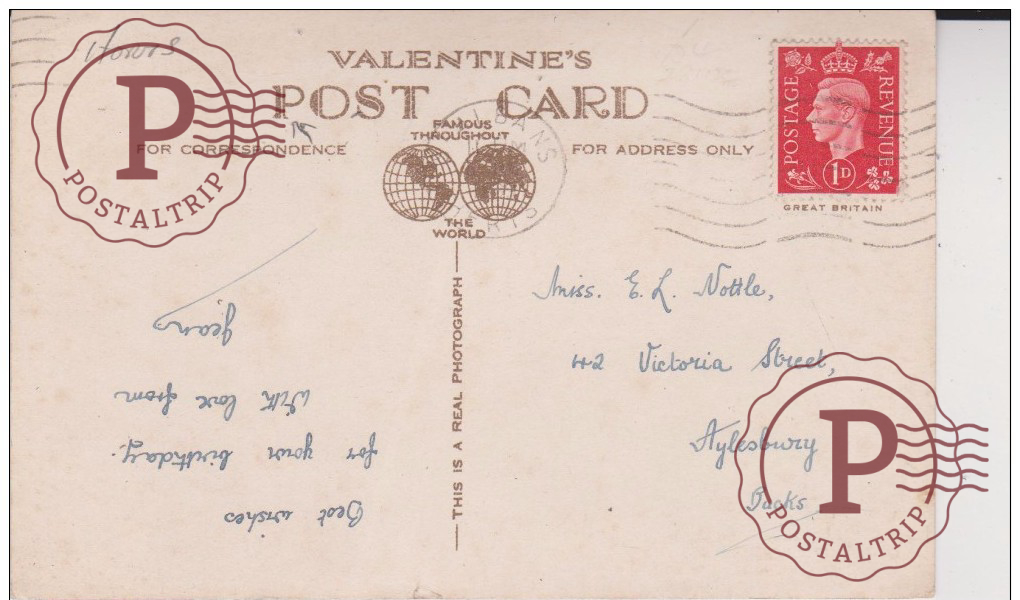 Horses
VALENTINE'S
POST CARD
FAMOUS THROUGHOUT
THE WORLD
FOR CORRESPONDENCE
FOR ADDRESS ONLY
POSTAGE REVENUE
1D
GREAT BRITAIN
BANS
HERTS
THIS IS A REAL PHOTOGRAPH
Best wishes
for your birthday.
With love from
Jean
Miss. E. L. Nottle,
42 Victoria Street,
Aylesbury
Bucks
P
POSTALTRIP
P
POSTALTRIP